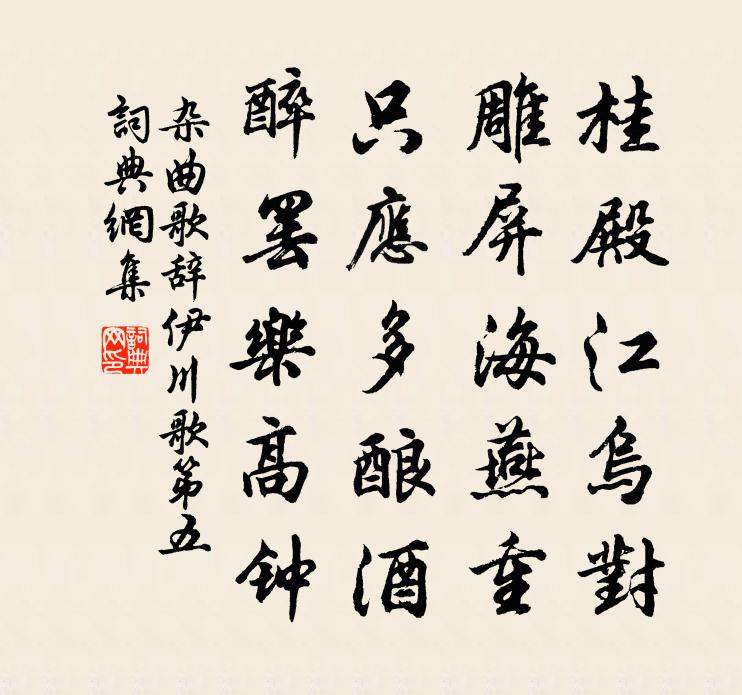 桂殿江烏對
雕屏海燕重
只應多酿酒
醉罢樂高钟
杂曲歌辞伊川歌第五
詞典網集
詞典网印